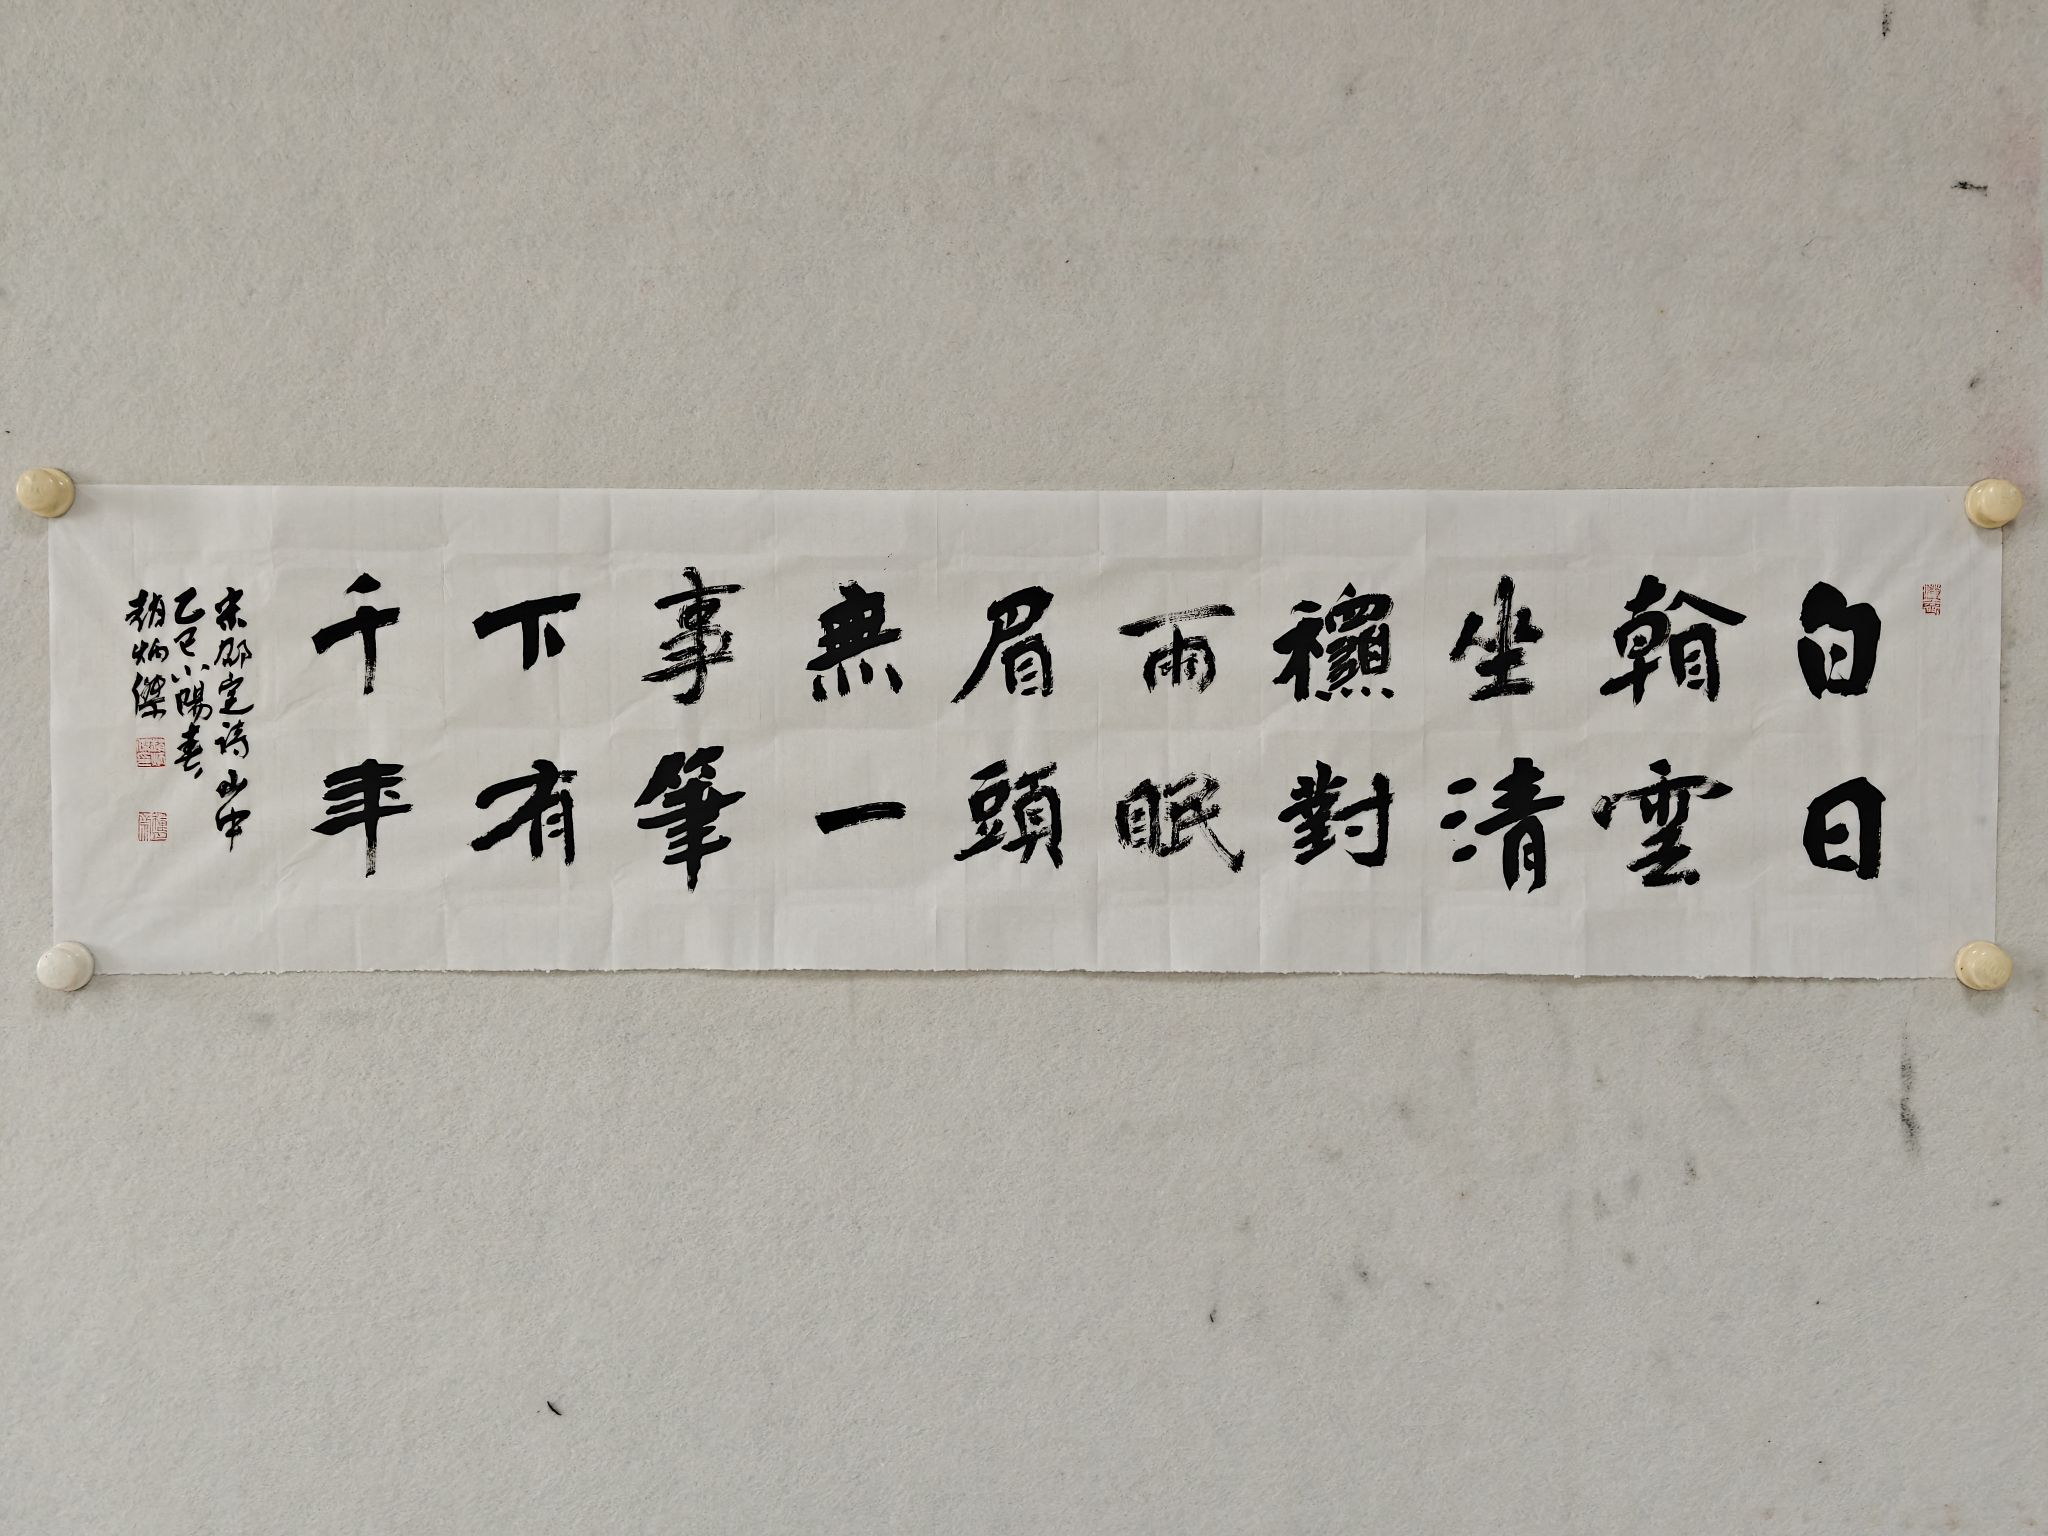 白日
翰雲
坐清
對
雨眠
眉頭
無一
事筆
下有
千年
宋邵定詩山中
乙巳小陽春
趙炳傑